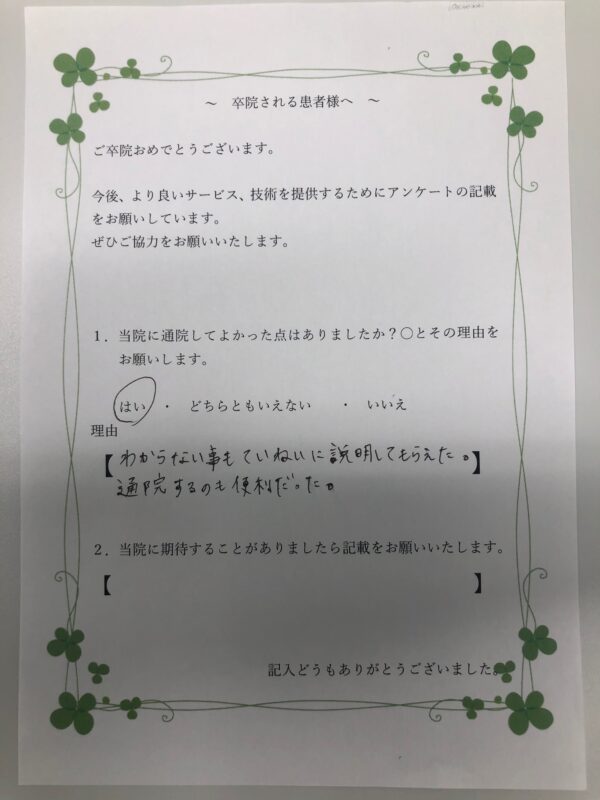 ～　卒院される患者様へ　～
ご卒院おめでとうございます。
今後、より良いサービス、技術を提供するためにアンケートの記載
をお願いしています。
ぜひご協力をお願いいたします。
１．当院に通院してよかった点はありましたか？○とその理由を
お願いします。
はい　・　どちらともいえない　　・　いいえ
理由
【わからない事もていねいに説明してもらえた。】
通院するのも便利だった。
２．当院に期待することがありましたら記載をお願いいたします。
【　　　　　　　　　　　　　　　　　　　　　　】
記入どうもありがとうございました。